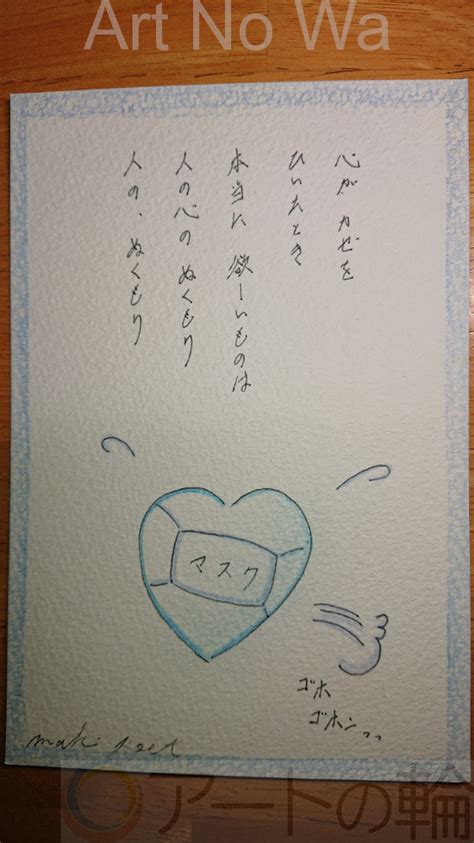 Art No Wa
心が カゼを
ひいたとき
本当に 欲しいものは
人の心の ぬくもり
人の、ぬくもり
マスク
ゴホ
ゴホン
アートの輪